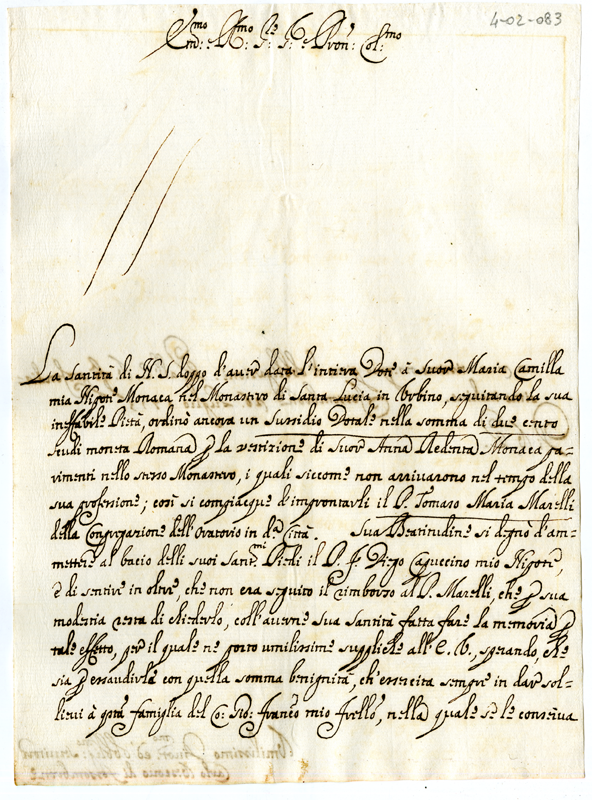 4-02-083
Em:mo e R:mo Sig:re Sig:re e Pron: Col:mo
La Santità di N. S. doppo d'aver data l'intiera Dote à Suor Maria Camilla
mia Nipote Monaca nel Monastero di Santa Lucia in Urbino, seguitando la sua
ineffabile Pietà, ordinò ancora un Sussidio Dotale nella somma di due cento
scudi moneta Romana p la vestizione di Suor Anna Redenta Monaca pa-
rimenti nello stesso Monastero, i quali siccome non arrivarono nel tempo della
sua professione; così si compiacque d'improntarli il P. Tomaso Maria Marelli
della Congregazione dell'Oratorio in d:a Città. Sua Beatitudine si degnò d'am-
mettere al bacio delli suoi Sant:mi Piedi il P. F. Diego Capuccino mio Nipote,
e di sentire in oltre, che non era seguito il rimborzo al P. Marelli, che p sua
modestia resta di chiederlo, coll'averne Sua Santità fatta fare la memoria p
tale effetto, per il quale ne porto umilissime suppliche all'E. V., sperando, che
sia p essaudirle con quella somma benignità, ch'essercita sempre in dar sol-
lievi à q:sta famiglia del Co: Gio: Fran:co mio Frello, nella quale se le conserva